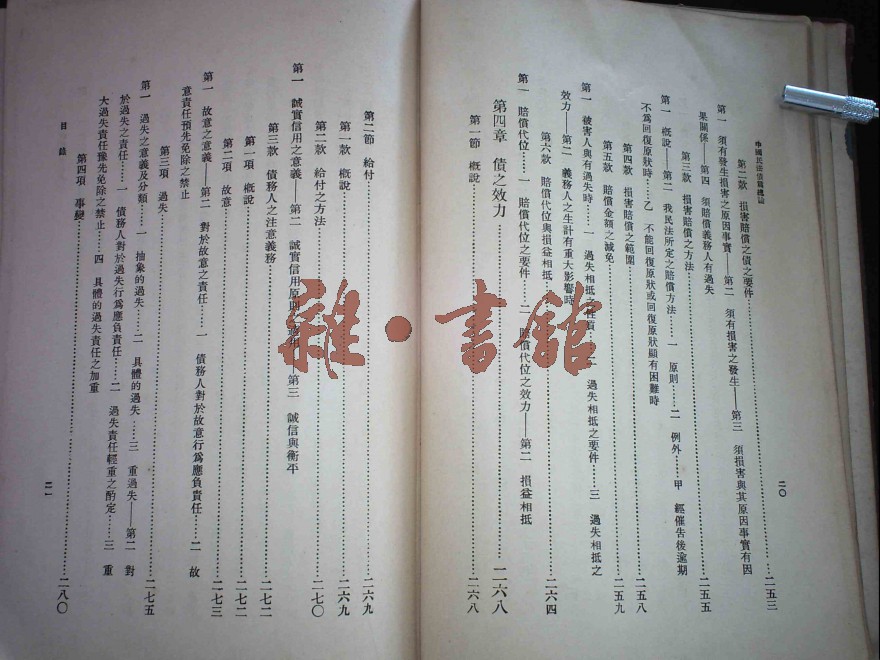 中國民法債篇總論
第二款 損害賠償之債之要件……二五三
第一 須有發生損害之原因事實——第二 須有損害之發生——第三 須損害與其原因事實有因
果關係——第四 須賠償義務人有過失
第三款 損害賠償之方法……二五五
第一 概說——第二 我民法所定之賠償方法……一 原則……二 例外……甲 經催告後逾期
不爲回復原狀時……乙 不能回復原狀或回復原狀顯有困難時
第四款 損害賠償之範圍……二五八
第五款 賠償金額之減免……二五九
第一 被害人與有過失時……一 過失相抵之性質……二 過失相抵之要件……三 過失相抵之
效力——第二 義務人之生計有重大影響時
第六款 賠償代位與損益相抵……二六四
第一 賠償代位……一 賠償代位之要件……二 賠償代位之效力——第二 損益相抵
第四章 債之效力……二六八
第一節 概說……二六八
二〇
第二節 給付……二六九
第一款 概說……二六九
第二款 給付之方法……二七〇
第一 誠實信用之意義——第二 誠實信用原則之適用——第三 誠信與衡平
第三款 債務人之注意義務……二七二
第一項 概說……二七二
第二項 故意……二七三
第一 故意之意義——第二 對於故意之責任……一 債務人對於故意行爲應負責任……二 故
意責任預先免除之禁止
第三項 過失……二七五
第一 過失之意義及分類……一 抽象的過失……二 具體的過失……三 重過失——第二 對
於過失之責任……一 債務人對於過失行爲應負責任……二 過失責任輕重之酌定……三 重
大過失責任豫先免除之禁止……四 具體的過失責任之加重
第四項 事變……二八〇
目錄
二一
雜·書館